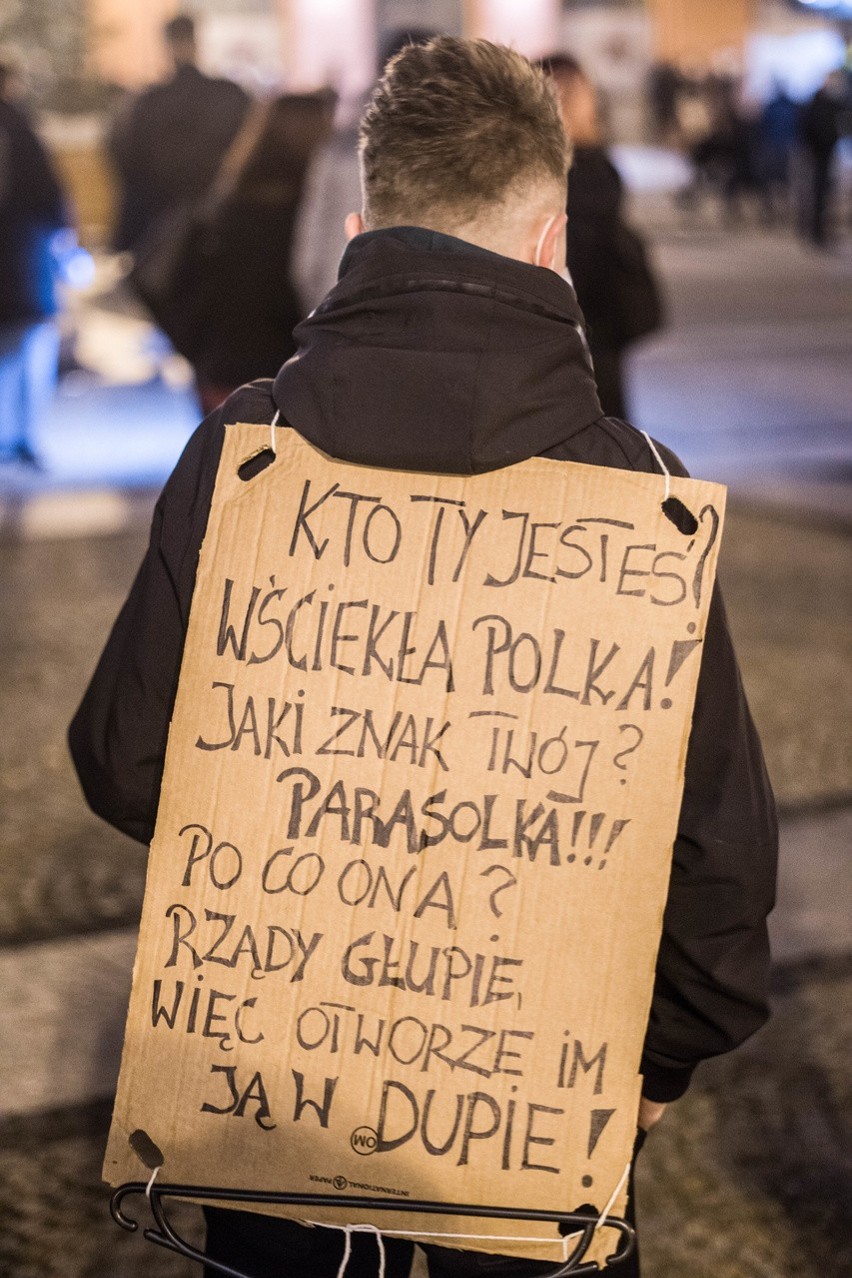 KTO TY JESTEŚ?
WŚCIEKŁA POLKA!
JAKI ZNAK TWÓJ?
PARASOLKA!!!
PO CO ONA?
RZĄDY GŁUPIE,
WIĘC OTWORZE IM
JĄ W DUPIE!
MO
INTERNATIONAL PAPER